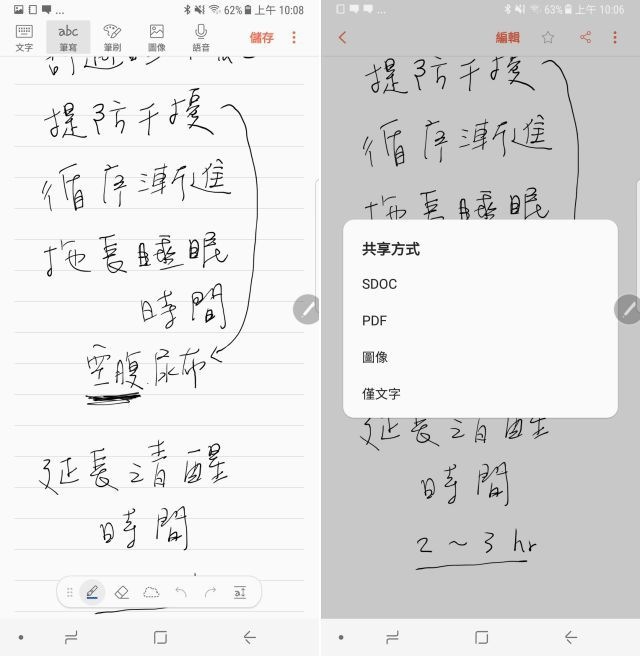 62% 上午 10:08
文字 筆寫 筆刷 圖像 語音 儲存
abc
提防干擾
循序漸進
拖長睡眠
時間
空腹.尿布
延長清醒
時間
63% 上午 10:06
編輯
提防干擾
循序漸進
拖長睡眠
共享方式
SDOC
PDF
圖像
僅文字
延長清醒
時間
2~3 hr